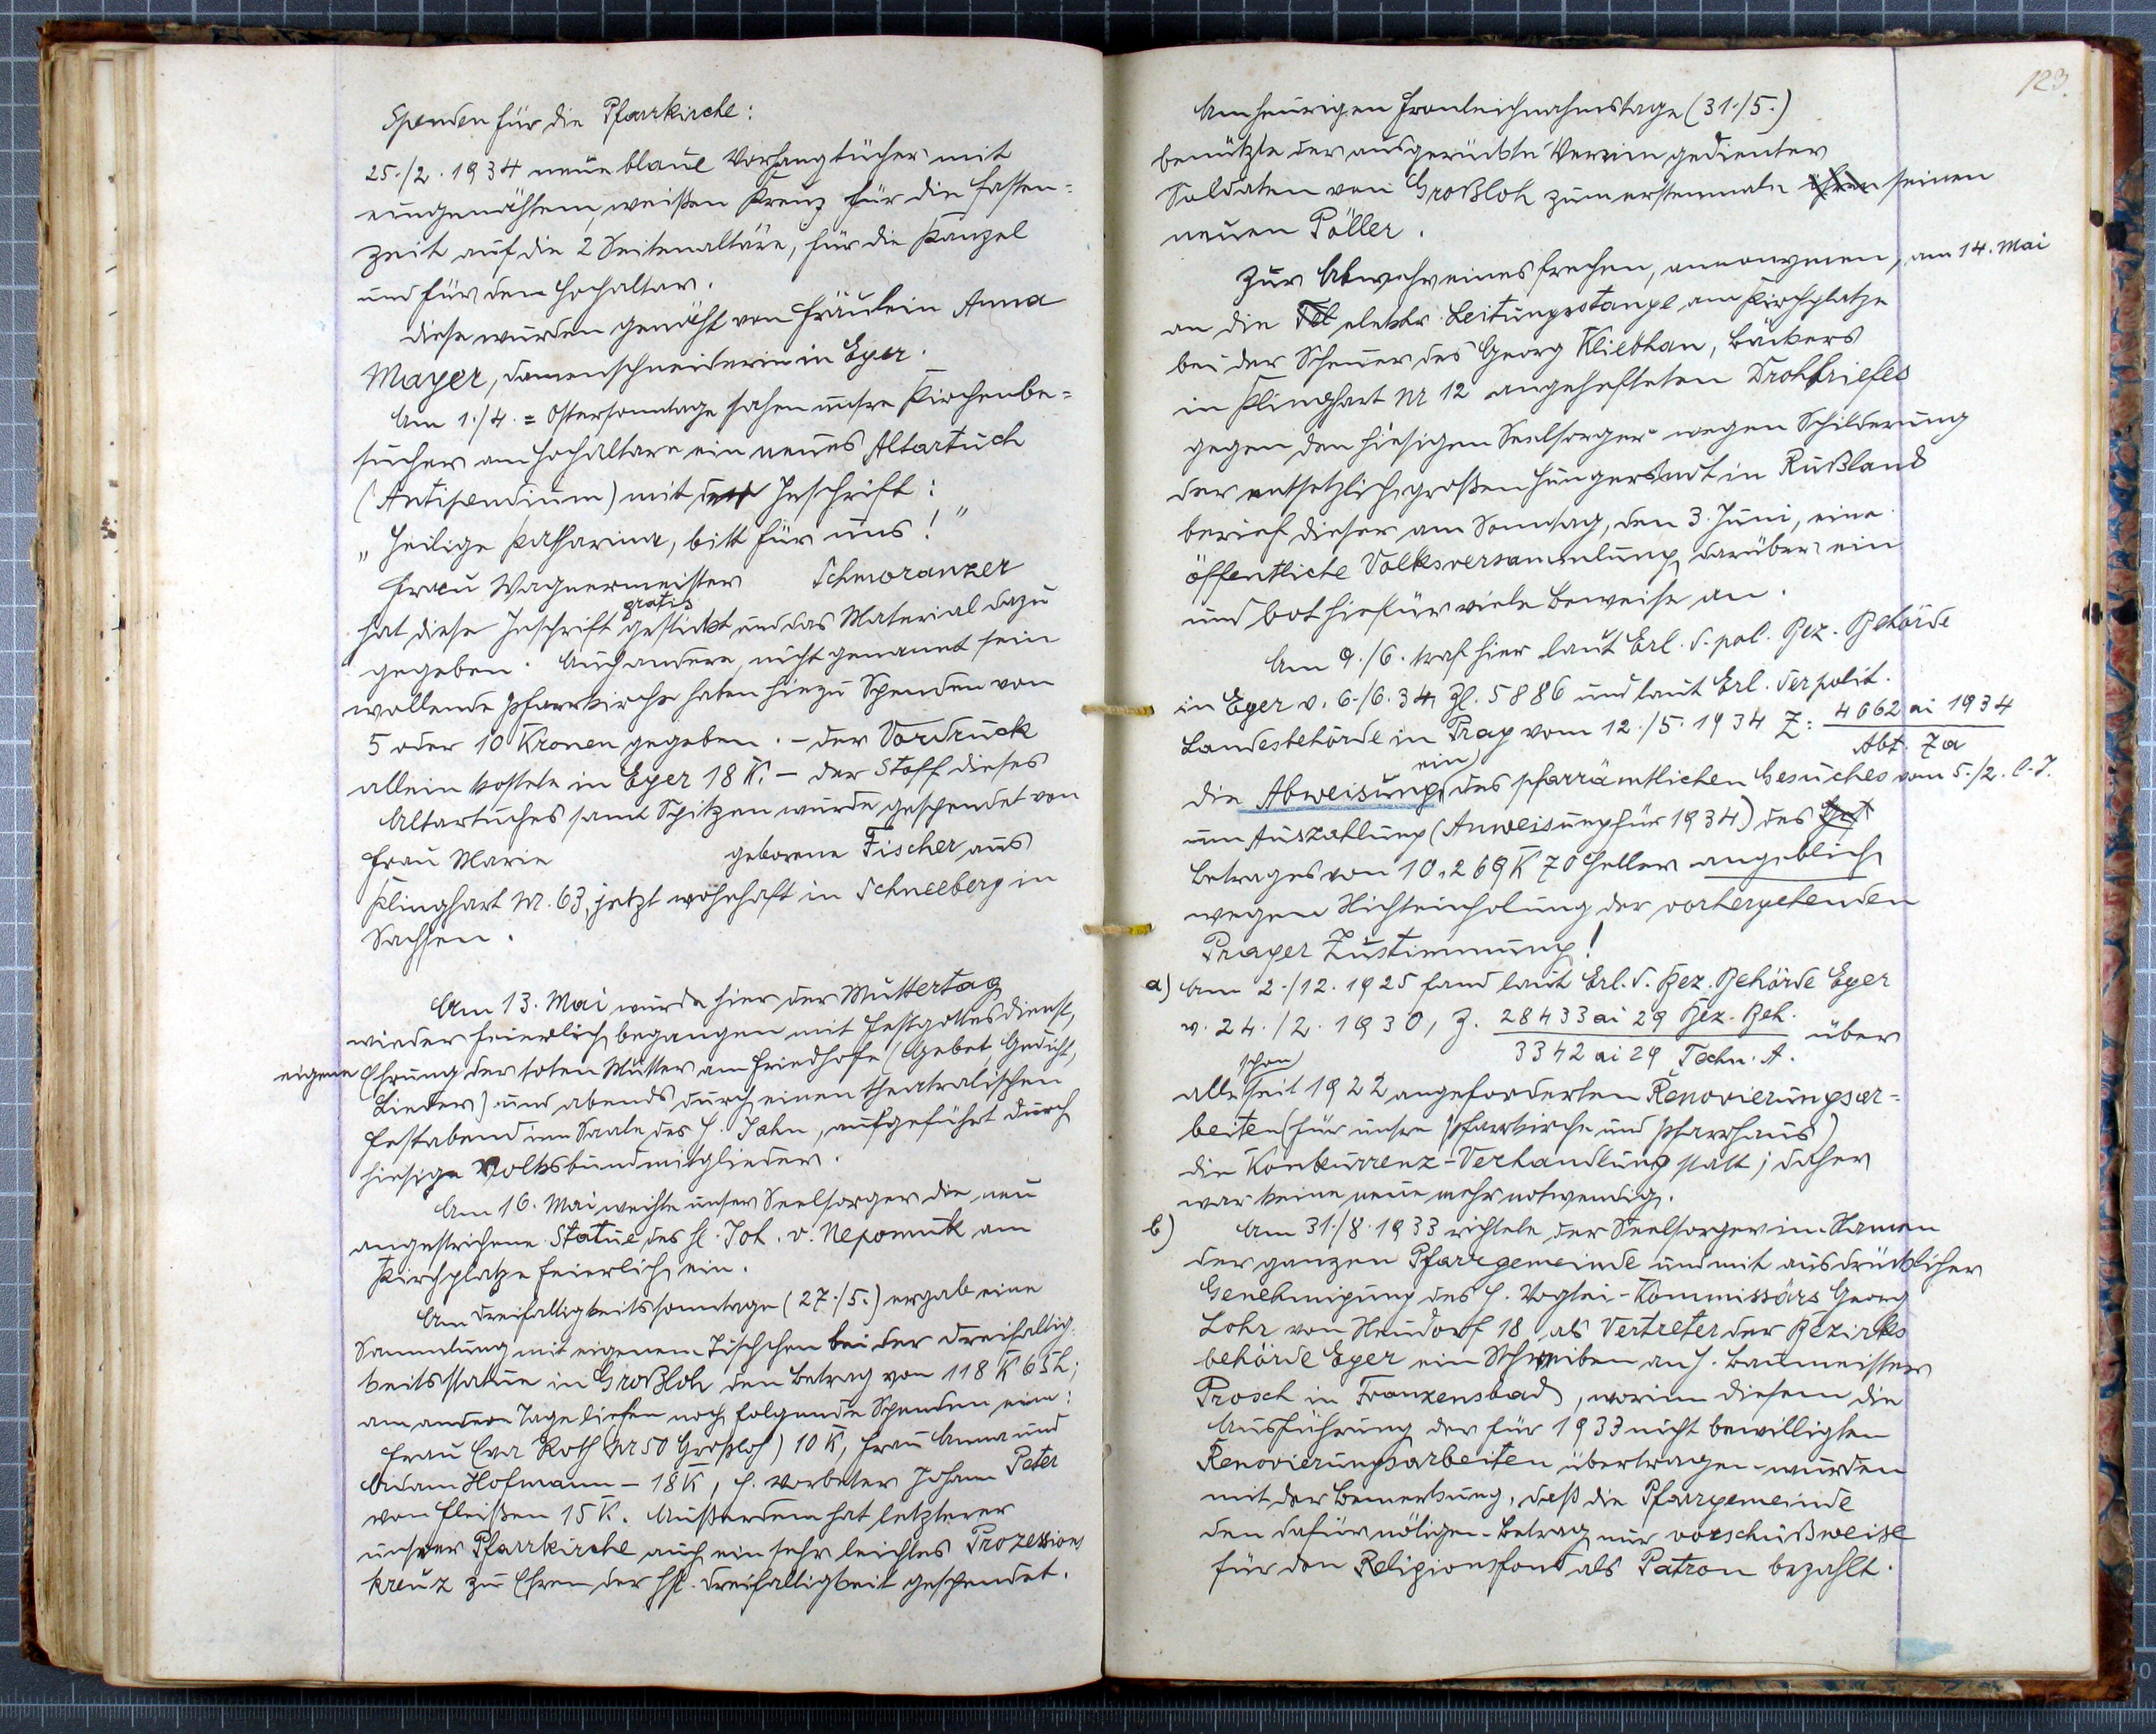 Spenden für die Pfarrkirche:
25./2. 1934 neue blaue Vorhangtücher mit
eingenähtem, weißen Kreuz für die Fasten=
zeit auf die 2 Seitenaltäre, für die Kanzel
und für den Hochaltar.
Diese wurden genäht von Fräulein Anna
Mayer, Damenschneiderin in Eger.
Am 1./4. = Ostersonntage sahen unsre Kirchenbe=
sucher am Hochaltare ein neues Altartuch
(Antipendium) mit der Inschrift:
"Heilige Katharina, bitt für uns!"
Frau Wagnermeister Schmoranzer
hat diese Inschrift gratis gestickt und das Material dazu
gegeben. Auch andere, nicht genannt sein
wollende Pfarrkirche haben hiezu Spenden von
5 oder 10 Kronen gegeben. - Der Vordruck
allein kostete in Eger 18 K. - Der Stoff dieses
Altartuches samt Spitzen wurde gespendet von
Frau Marie geborene Fischer aus
Klinghart Nr. 63, jetzt wohnhaft in Schneeberg in
Sachsen.
Am 13. Mai wurde hier der Muttertag
wieder feierlich begangen mit Festgottesdienst,
eigene Ehrung der toten Mütter am Friedhofe (Gebet, Gedicht,
Lieder) und abends durch einen theatralischen
Festabend im Saale des H. Jahn, aufgeführt durch
hiesige Volksbundmitglieder.
Am 16. Mai weihte unser Seelsorger die neu
angestrichene Statue des hl. Joh. v. Nepomuk am
Kirchplatze feierlich ein.
Am Dreifaltigkeitssonntage (27./5.) ergab eine
Sammlung mit eigenem Tischchen bei der Dreifaltig-
keitsstatue in Großloh den Betrag von 118 K 65 h;
am andern Tage liefen noch folgende Spenden ein:
Frau Eva Roth (Nr 50 Großloh) 10 K, Frau Anna und
Adam Hofmann - 18 K, H. Vorbeter Johann Peter
von Fleißen 15 K. Außerdem hat letzterer
unsrer Pfarrkirche auch ein sehr leichtes Prozessions
kreuz zu Ehren der hlst. Dreifaltigkeit gespendet.
123.
Am heurigen Fronleichnahmstage (31./5.)
benützte der ausgerückte Verein gedienter
Soldaten von Großloh zum erstenmale ihren seinen
neuen Pöller.
Zur Abwehr eines frechen, annonymen, am 14. Mai
an die Tel elektr. Leitungsstange am Kirchplatze
bei der Scheuer des Georg Kliebhan, Bäckers
in Klinghart Nr 12 angehefteten Drohbriefes
gegen den hiesigen Seelsorger wegen Schilderung
der entsetzlich großen Hungersnot in Rußland
berief dieser am Sonntag, den 3. Juni, eine
öffentliche Volksversammlung darüber ein
und bot hiefür viele Beweise an.
Am 9./6. traf hier laut Erl. d. pol. Bez. Behörde
in Eger v. 6./6. 34, Zl. 5886 und laut Erl. der polit.
Landesbehörde in Prag vom 12./5. 1934 Z: 4662 ai 1934
Abt. 7a
ein
die Abweisung des pfarrämtlichen Gesuches vom 5./2. l. J.
um Auszahlung (Anweisung für 1934) des
Betrages von 10.269 K 70 Heller angeblich
wegen Nichteinholung der vorhergehenden
Prager Zustimmung!
a) Am 2./12. 1925 fand laut Erl. d. Bez. Behörde Eger
v. 24./2. 1930, Z. 28433 ai 29 Bez. Beh. über
3342 ai 29 Techn. A.
schon
alle seit 1922 angeforderten Renovierungsar=
beiten (für unsre Pfarrkirche und Pfarrhaus)
die Konkurrenz-Verhandlung statt; daher
war keine neue mehr notwendig.
b) Am 31./8. 1933 richtete der Seelsorger im Namen
der ganzen Pfarrgemeinde und mit ausdrücklicher
Genehmigung des H. Vogtei-Kommissärs Georg
Lohr von Neudorf 18 als Vertreter der Bezirks
behörde Eger ein Schreiben an H. Baumeister
Prosch in Franzensbad, worin diesem die
Ausführung der für 1933 nicht bewilligten
Renovierungsarbeiten übertragen wurden
mit der Bemerkung, daß die Pfarrgemeinde
den dafür nötigen Betrag nur vorschußweise
für den Religionsfond als Patron bezahlt.